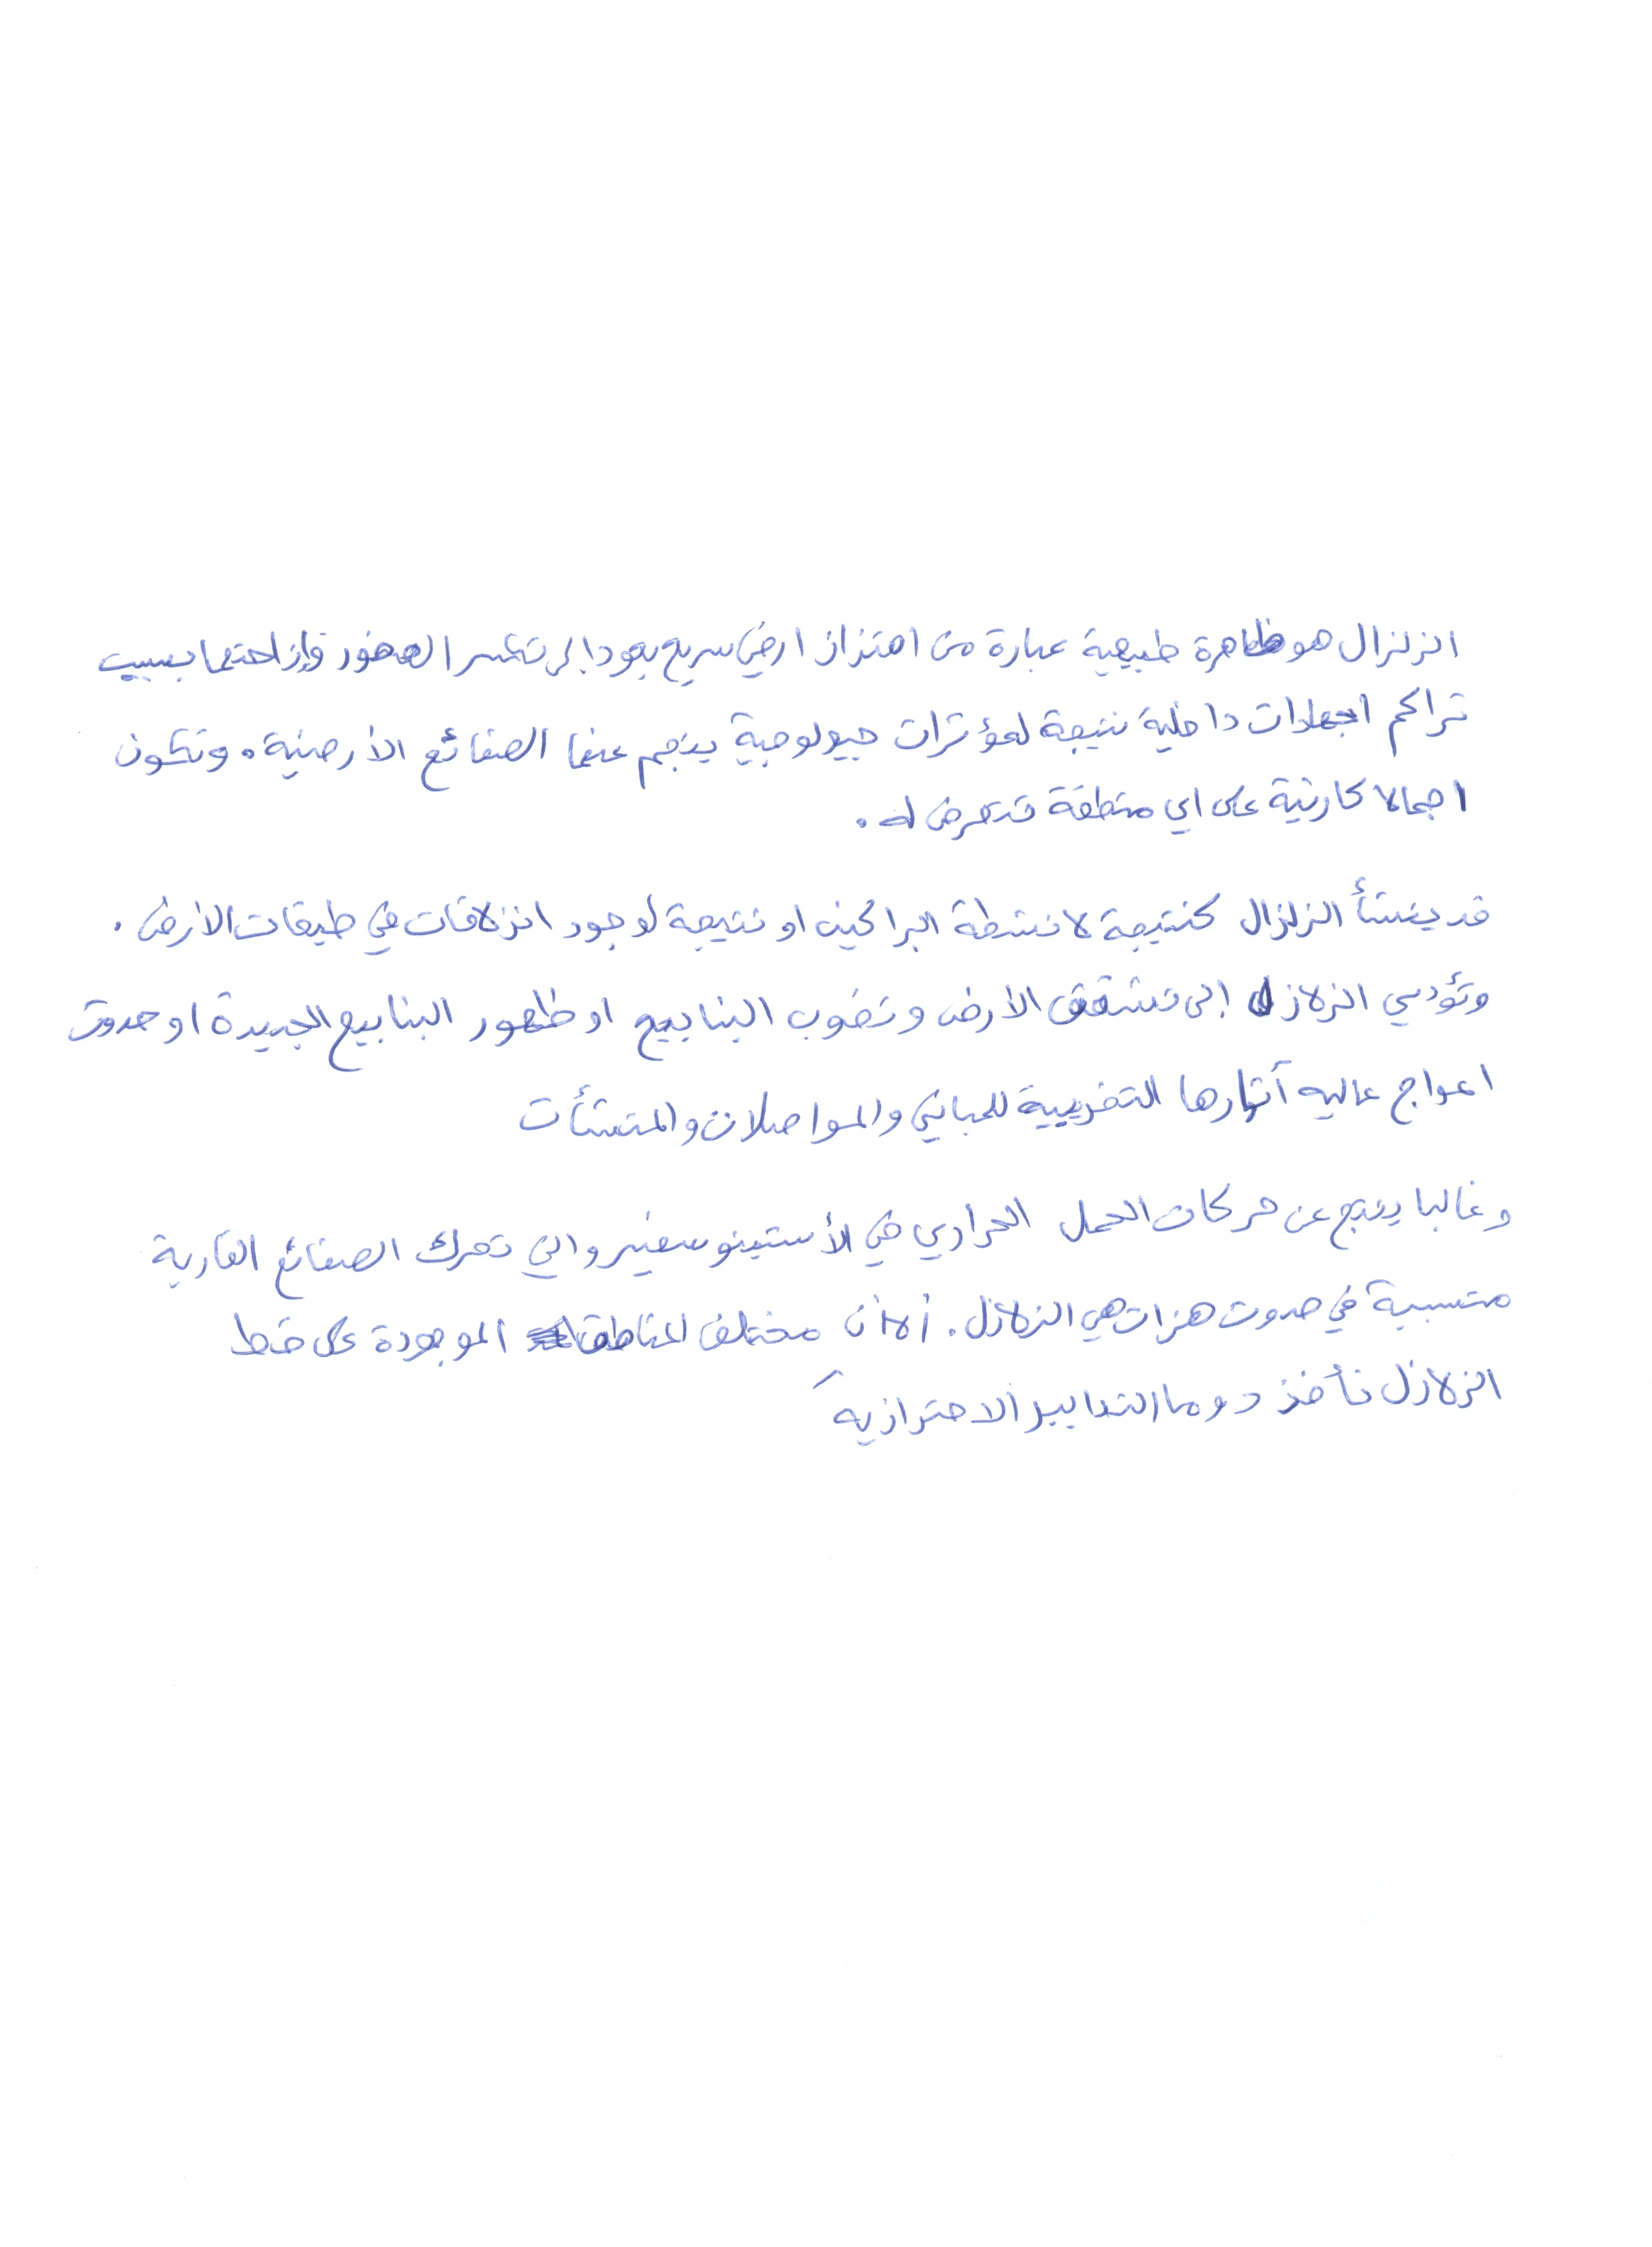 الزلزال هو ظاهرة طبيعية عبارة من اهتزاز ارضي سريع يعود إلى تكسر الصخور وإزاحتها بسبب
تراكم اجهادات داخلية نتيجة لمؤثرات جيولوجية ينجم عنها الصفائح الأرضية. وتكون
اجمالا كارثية على اي منطقة تتعرض له.
قد ينشأ الزلزال كنتيجة لانشطة البراكين او نتيجة لوجود انزلاقات في طبقات الأرض.
وتؤدي الزلازل إلى تشقق الأرض ونضوب الينابيع او ظهور الينابيع الجديدة او حدوث
امواج عاليه آثارها التخريبية للمباني والمواصلات والمنشأت
وغالبا ينتج عن حركات الحمل الحراري في الأستينوسفير والتي تحرك الصفائح القارية
متسببة في حدوث هزات هي الزلازل. إلا أن مختلف المناطق الموجودة على خط
الزلازل تأخذ دوما التدابير الاحترازيه